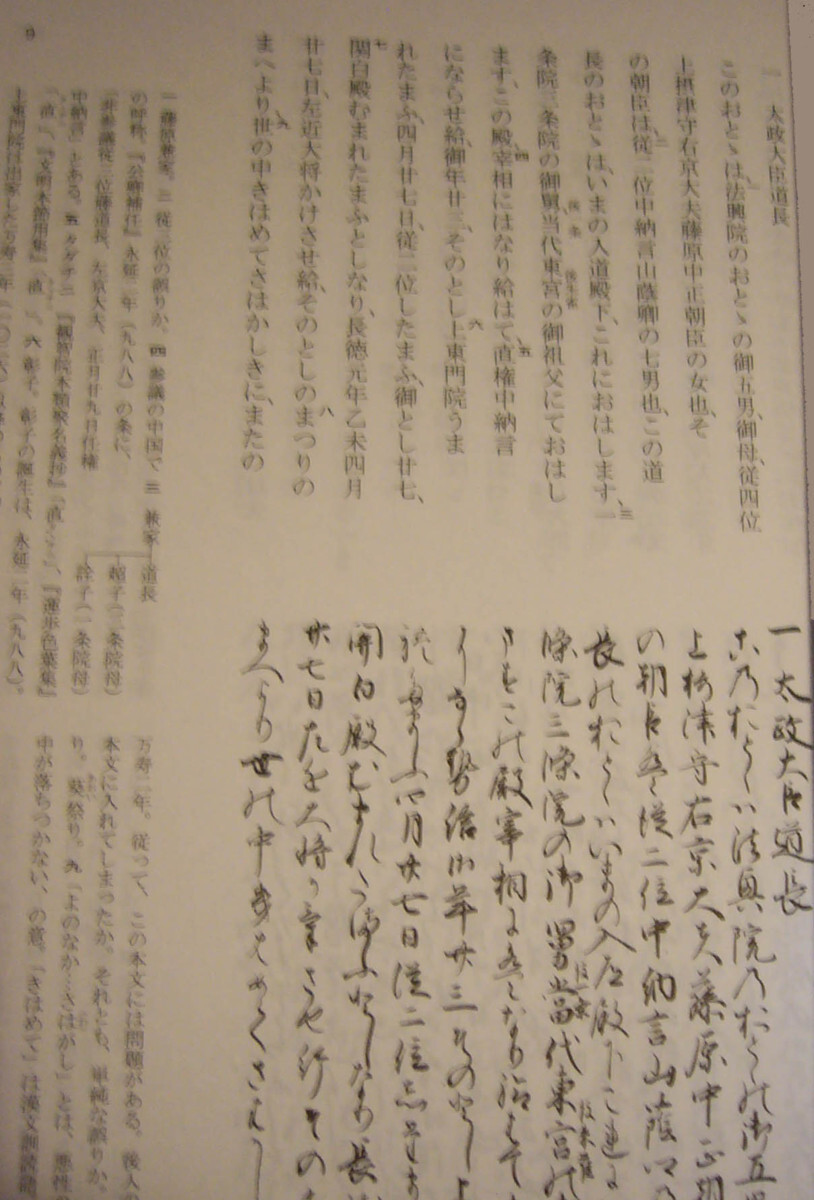 一 太政大臣道長
このおとゝは、法興院のおとゝの御五男、御母、従四位
上摂津守右京大夫藤原中正朝臣の女也、そ
の朝臣は、従二位中納言山蔭卿の七男也、この道
長のおとゝは、いまの入道殿下、これにおはします、一
条院三条院の御舅、当代東宮の御祖父にておはし
後一条
後朱雀
ます、この殿、宰相にはなり給はて、直権中納言
にならせ給、御年廿三、そのとし、上東門院うま
れたまふ、四月廿七日、従二位したまふ、御とし廿七、
関白殿むまれたまふとしなり、長徳元年乙未四月
廿七日、左近大将かけさせ給、そのとしのまつりの
まへより、世の中きはめてさはかしきに、またの
一 太政大臣道長
このおとゝハ法興院のおとゝの御五
上摂津守右京大夫藤原中正朝
の朝臣は従二位中納言山蔭卿の
長のおとゝハいまの入道殿下これに
條院三條院の御舅當代東宮の
後一條
後朱雀
ますこの殿宰相にはなり給はて
にならせ給御年廿三そのとし上
れたまふ四月廿七日従二位したま
関白殿むまれたまふとしなり長
廿七日左近大将かけさせ給そのと
まへより世の中きはめてさはかし
一 藤原兼家。 二 従三位の誤りか。 四 参議の中国で
の呼称。『公卿補任』永延二年(九八八)の条に、
「非参議従三位藤道長、左京大夫、正月廿九日任権
中納言」とある。 五 タダチニ 『観智院本類聚名義抄』「直
「直」、『文明本節用集』「直」、 六 彰子。彰子の誕生は、永延二年(九八八)。
三 兼家
道長
超子(三条院母)
詮子(一条院母)
『運歩色葉集』
上東門院は出家した万寿三年(一〇二六)
万寿二年。従って、この本文には問題がある。後人の
本文に入れてしまったか。それとも、単純な誤りか。
り。 葵祭り。 九「よのなか…さはがし」とは、悪性の
中が落ちつかない、の意。「きはめて」は漢文訓読語
9